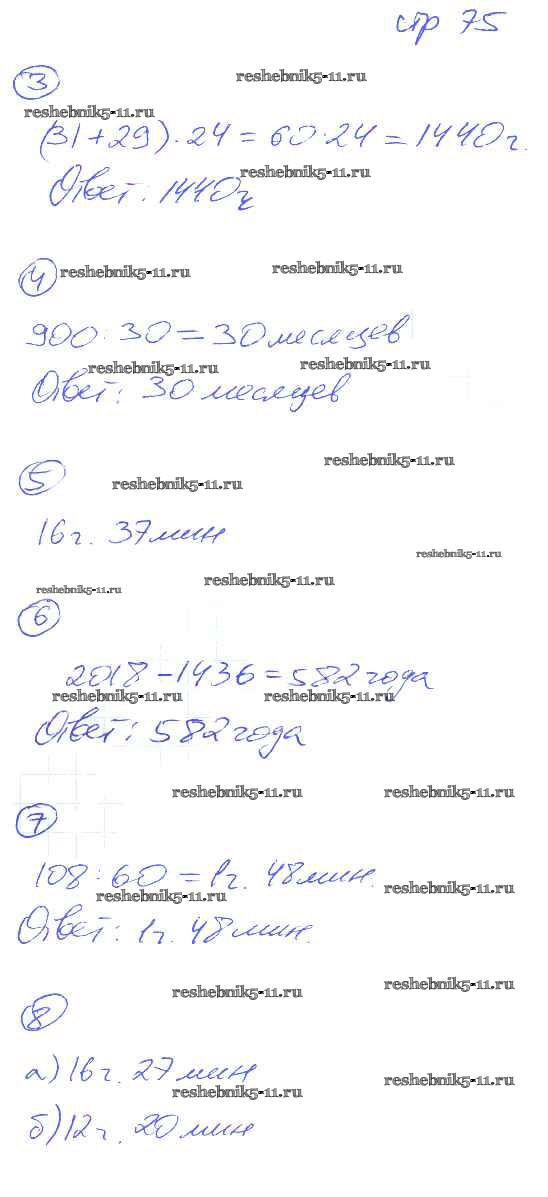 стр 75
③ reshebnik5-11.ru
reshebnik5-11.ru
(31+29)·24=60·24=1440ч.
reshebnik5-11.ru
Ответ: 1440ч
④ reshebnik5-11.ru reshebnik5-11.ru
900:30=30месяцев
reshebnik5-11.ru reshebnik5-11.ru
Ответ: 30месяцев
reshebnik5-11.ru
⑤ reshebnik5-11.ru
16ч. 37мин
reshebnik5-11.ru
reshebnik5-11.ru
reshebnik5-11.ru
⑥
2018-1436=582года
reshebnik5-11.ru reshebnik5-11.ru
Ответ: 582года
reshebnik5-11.ru reshebnik5-11.ru
⑦
108:60=1ч. 48мин.
reshebnik5-11.ru reshebnik5-11.ru
Ответ: 1ч. 48мин.
reshebnik5-11.ru reshebnik5-11.ru
⑧
а) 16ч. 27мин
reshebnik5-11.ru reshebnik5-11.ru
б) 12ч. 20мин